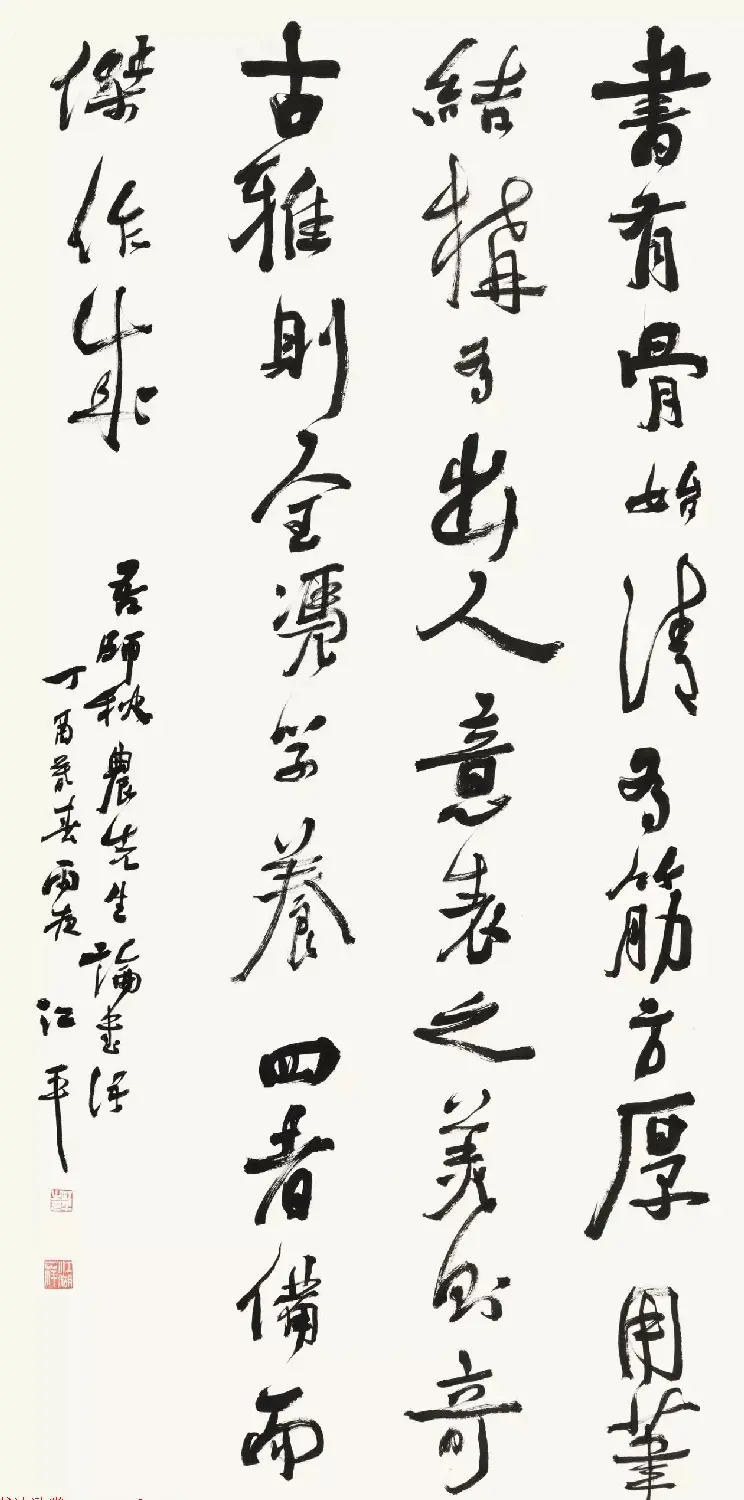 書有骨始清有筋方厚用筆
結構有出人意表之美則奇
古雅則全憑学養四者備而
傑作成
吾師秋農先生論書語
丁酉暮春雨夜江平